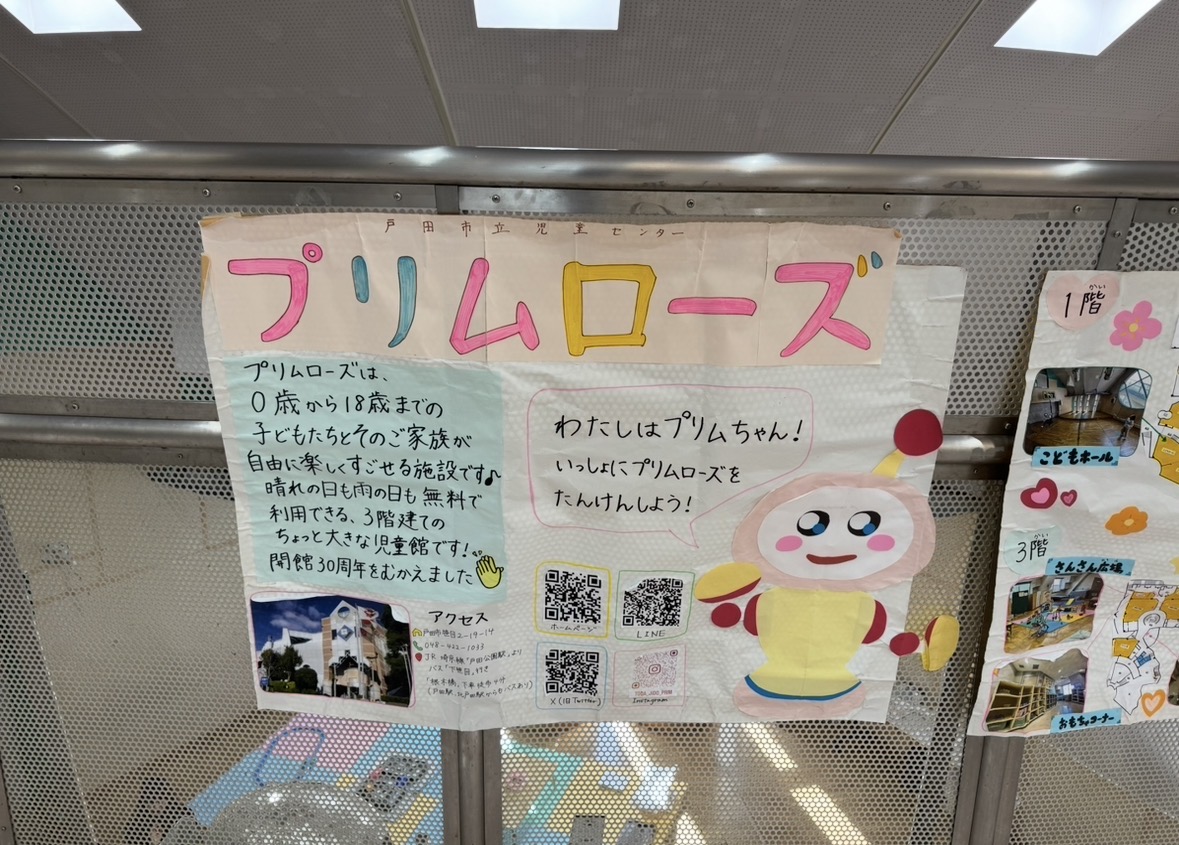 戸田市立児童センター
プリムローズ
プリムローズは、
0歳から18歳までの
子どもたちとそのご家族が
自由に楽しくすごせる施設です♪
晴れの日も雨の日も無料で
利用できる、3階建ての
ちょっと大きな児童館です!
開館30周年をむかえました
わたしはプリムちゃん!
いっしょにプリムローズを
たんけんしよう!
アクセス
戸田市笹目2-19-14
048-422-1033
JR埼京線「戸田公園駅」より
バス「下笹目」行き
下車徒歩4分
ホームページ
LINE
X(旧Twitter)
Instagram
1階
かい
こどもホール
3階
かい
さんさん広場
おもちゃコーナー